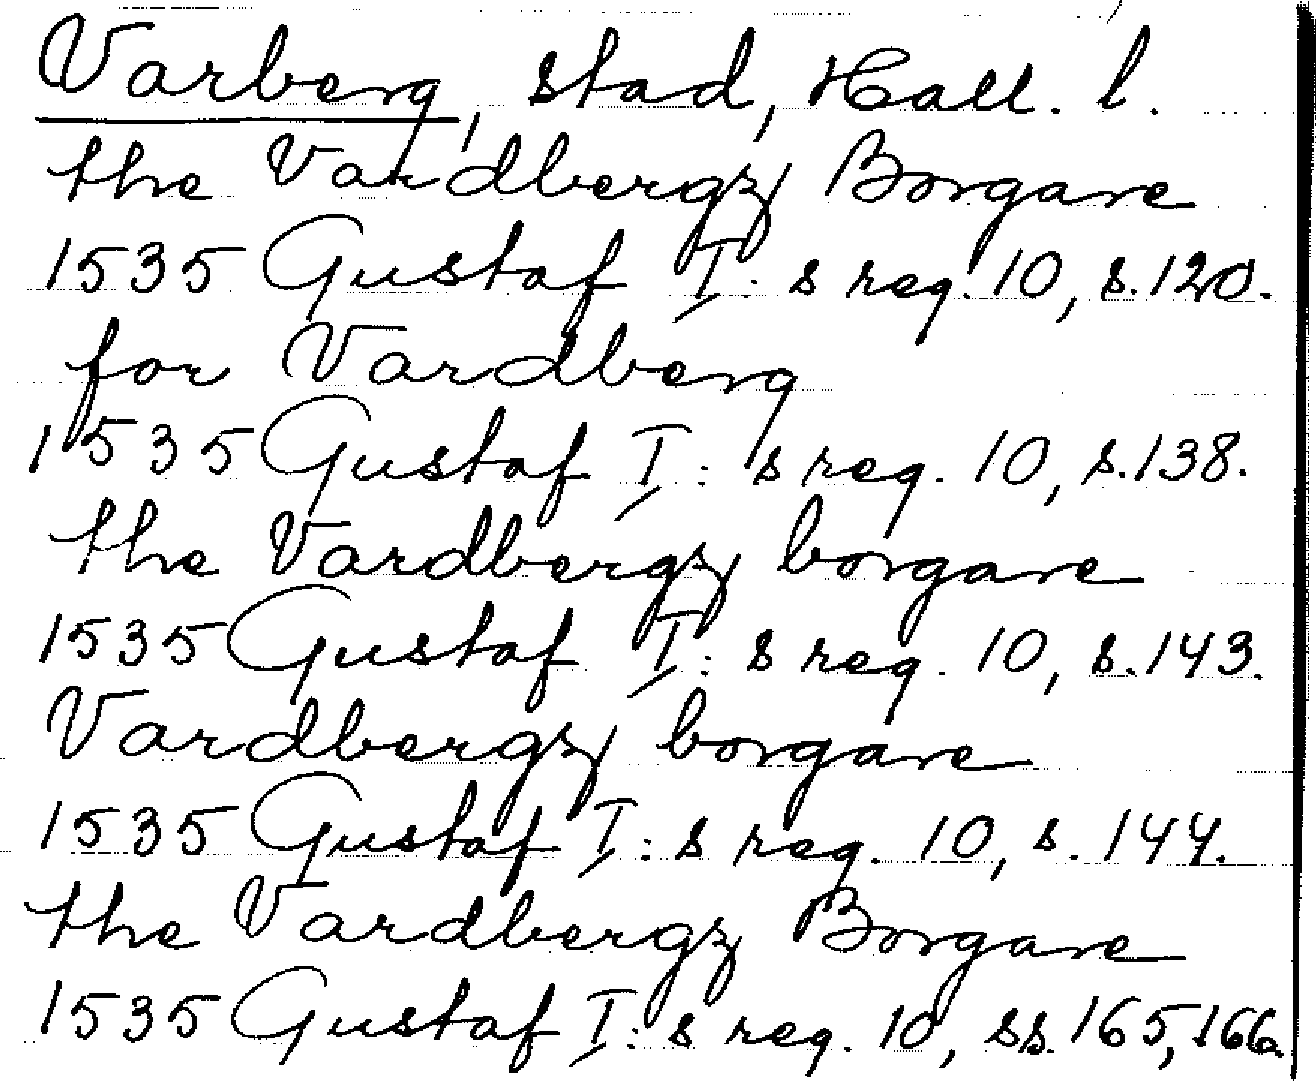 Varberg, stad, Hall. l.
the Vardbergz Borgare
1535 Gustaf I: s reg. 10, s. 120.
for Vardberg
1535 Gustaf I: s reg. 10, s. 138.
the Vardbergz borgare
1535 Gustaf I: s reg. 10, s. 143.
Vardbergz borgare
1535 Gustaf I: s reg. 10, s. 144.
the Vardbergz Borgare
1535 Gustaf I: s reg. 10, ss. 165, 166.